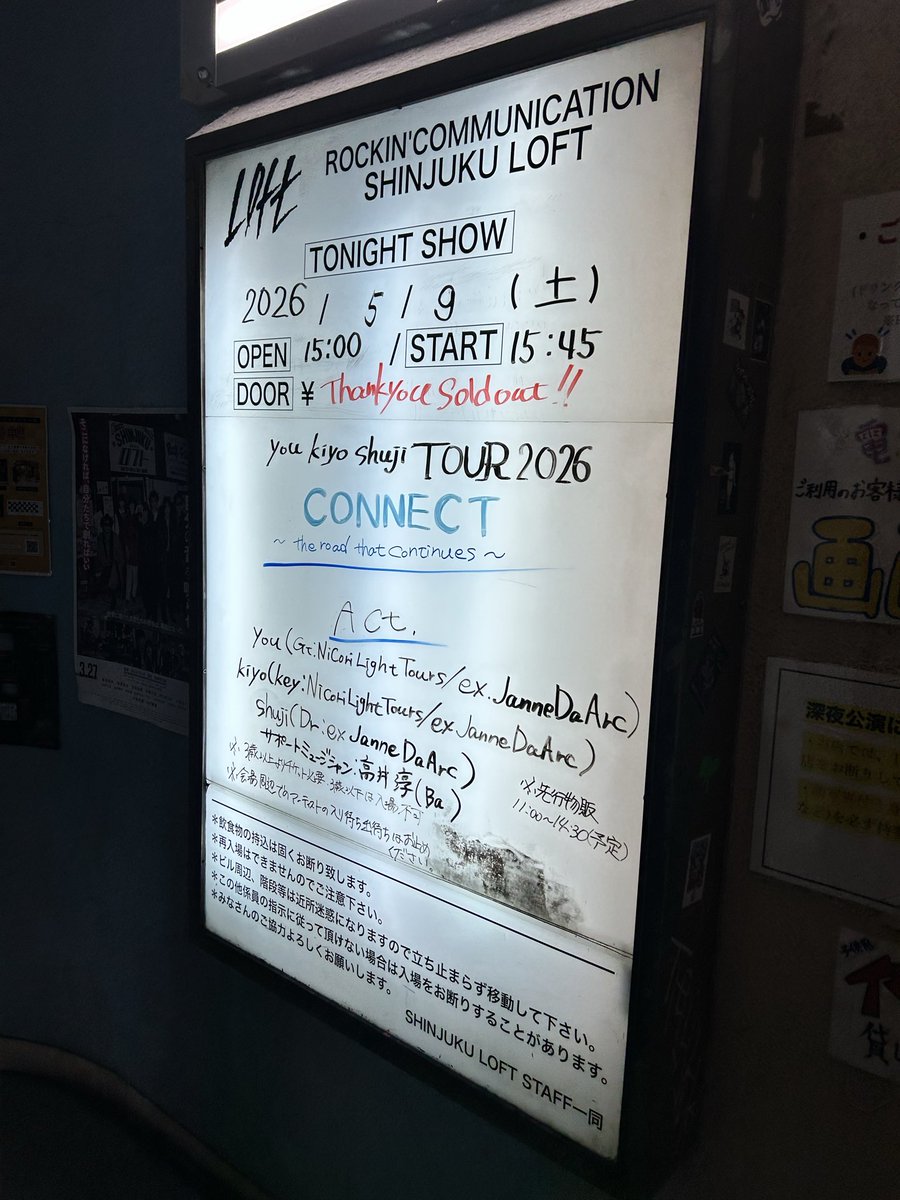 Loft
ROCKIN'COMMUNICATION
SHINJUKU LOFT
TONIGHT SHOW
2026 / 5 / 9 (土)
OPEN 15:00 / START 15:45
DOOR ¥ Thankyou Soldout!!
you kiyo shuji TOUR 2026
CONNECT
~ the road that continues ~
Act.
you (Gt: NicoriLightTours/ex. JanneDaArc)
kiyo(key: NicoriLightTours/ex JanneDaArc)
shuji(Dr: ex JanneDaArc)
サポートミュージシャン: 高井 淳(Ba)
※3歳以上よりチケット必要 3歳以下は入場不可
※会場周辺でのアーティストの入り待ち出待ちはお止め
ください
※先行物販
11:00~14:30(予定)
*飲食物の持込は固くお断り致します。
*再入場はできませんのでご注意下さい。
*ビル周辺、階段等は近所迷惑になりますので立ち止まらず移動して下さい。
*この他係員の指示に従って頂けない場合は入場をお断りすることがあります。
*みなさんのご協力よろしくお願いします。
SHINJUKU LOFT STAFF一同
SHINJUKU
3.27
電
ご利用のお客様
画
深夜公演は
貸